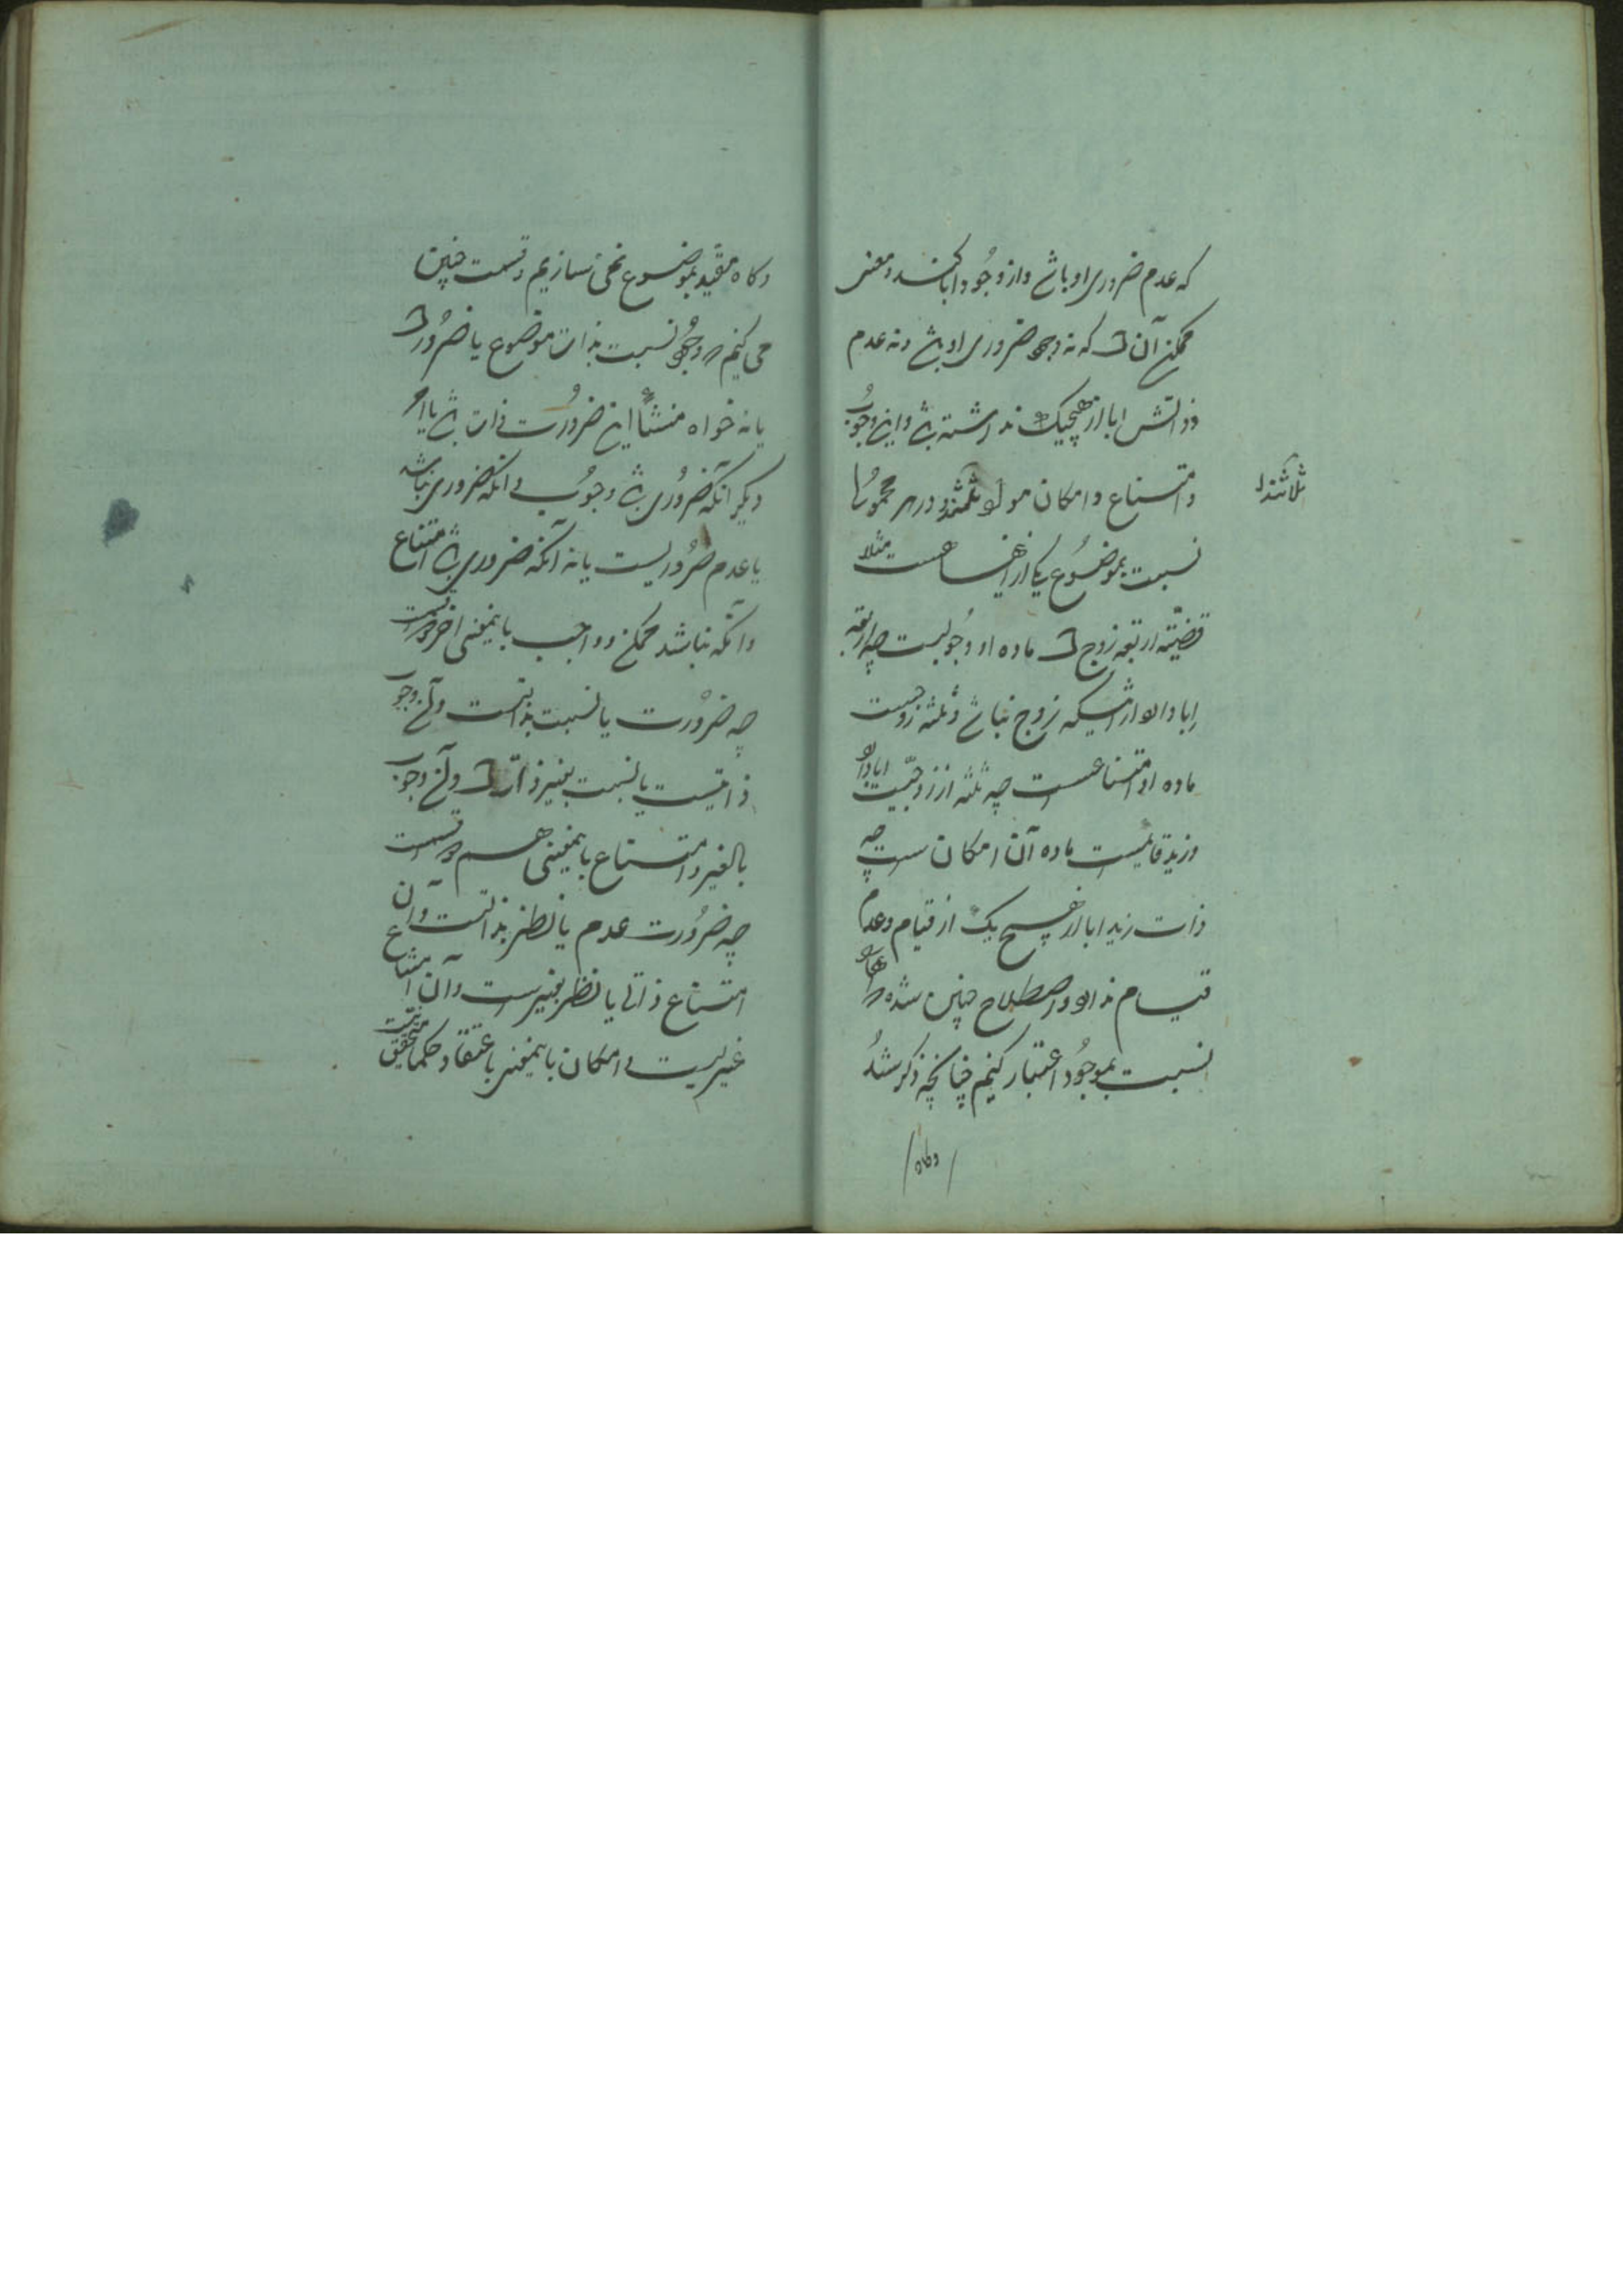 که عدم ضروری او باشد و از وجود ابا کند و معنی
ممکن آن است که نه وجود ضروری او باشد و نه عدم
و ذاتش ابا از هیچیک نداشته باشد و این وجوب
و امتناع و امکان مواد ثلثند و در هر محمولی
ثلاثند
نسبت بموضوع یکی ازینها هست مثلا
قضیّه اربعه زوج است ماده او وجوبست چه اربعه
ابا دارد از اینکه زوج نباشد و ثلثه زوجست
ماده او امتناعست چه ثلثه از زوجیّت ابا دارد
و زید قائمست ماده آن امکان است چه
ذات زید ابا از هیچ یک از قیام و عدم
قیام ندارد و اصطلاح چنین شده که هرگاه
نسبت بموجود اعتبار کنیم چنانچه ذکر شد
وگاه
وگاه مقید بموضوع نمی‌سازیم و قسمت چنین
می کنیم که وجود نسبت بذات موضوع یا ضرور است
یا نه خواه منشأ این ضرورت ذات باشد یا امر
دیگر آنکه ضروری باشد وجوب و آنکه ضروری نباشد
یا عدم ضروریست یا نه آنکه ضروری باشد امتناع
و آنکه نباشد ممکن و واجب باینمعنی
چه ضرورت یا نسبت بذاتست و آن وجوب
ذاتیست یا نسبت بغیر ذات است و آن وجوب
بالغیر و امتناع باینمعنی هم دو قسمست
چه ضرورت عدم یا نظر بذاتست و آن
امتناع ذاتی یا نظر بغیرست و آن امتناع
غیریست و امکان باینمعنی باعتقاد حکما متحقق نیست